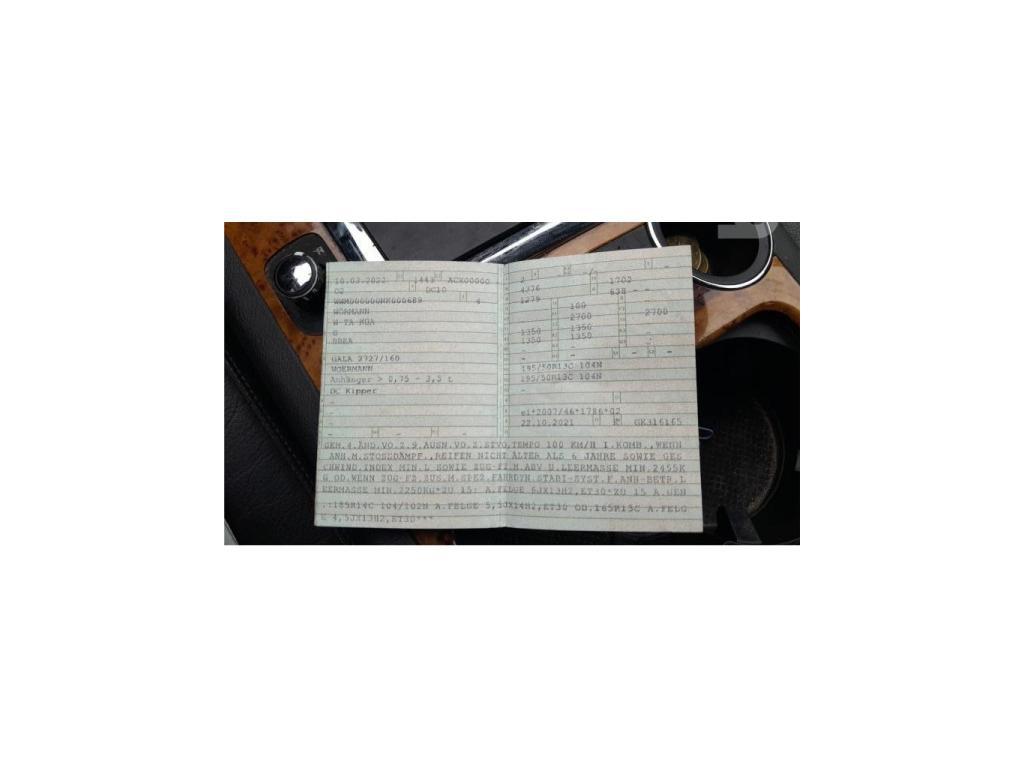 10.03.2022 1443 ACK00000
02 DC10
WWM000000NK000689 4
WÖRMANN
W-TA-KGA
G
BREA
GALA 2727/160
WOERMANN
Anhänger > 0,75 - 3,5 t
DC Kipper
-
-
- - -
2 -/- -
4376 1702
1279 638 - -
100
2700 2700
1350 1350
1350 1350 -
- - - - -
195/50R13C 104N
195/50R13C 104N
-
e1*2007/46*1786*02
22.10.2021 GK316165
GEM.4.ÄND.VO.Z.9.AUSN.VO.Z.STVO,TEMPO 100 KM/H I.KOMB.,WENN
ANH.M.STOSSDÄMPF.,REIFEN NICHT ÄLTER ALS 6 JAHRE SOWIE GES
CHWIND.INDEX MIN.L SOWIE ZUG-FZ.M.ABV U.LEERMASSE MIN.2455K
G OD.WENN ZUG-FZ.ZUS.M.SPEZ.FAHRDYN.STABI-SYST.F.ANH-BETR.L
EERMASSE MIN.2250KG*ZU 15: A.FELGE 6JX13H2,ET30*ZU 15 A.GEN
.:185R14C 104/102N A.FELGE 5,5JX14H2,ET30 OD.165R13C A.FELG
E 4,5JX13H2,ET30***